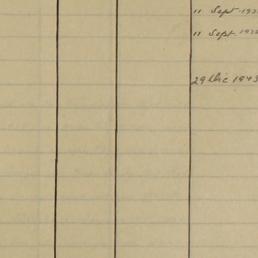 11 Sept 193
11 Sept 193
29 Dec 1943